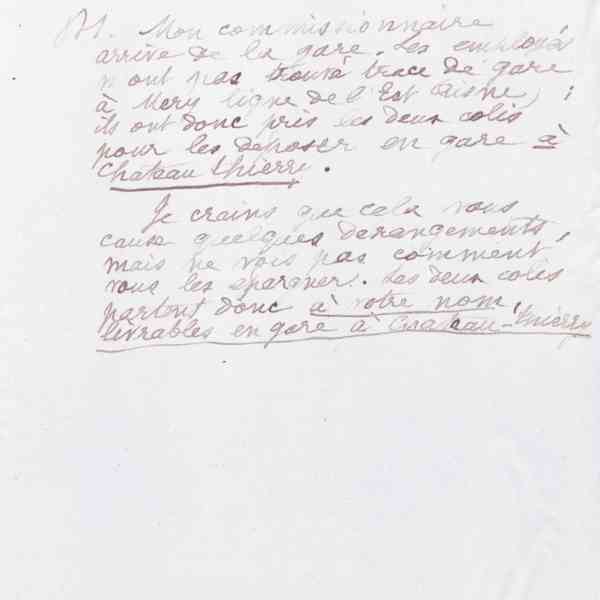 Mon commissionnaire
arrive de la gare. Les employés
n'ont pas trouvé trace de gare
à Mery ligne de l'Est (Aisne) ;
ils ont donc pris les deux colis
pour les déposer en gare à
Chateau thierry.
Je crains que cela vous
cause quelques derangements,
mais ne vois pas comment
vous les épargner. Les deux colis
partent donc à votre nom,
livrables en gare à Chateau-thierry